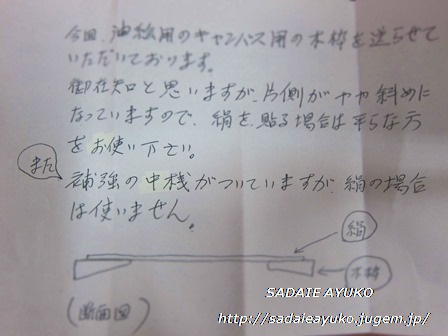 今回、油絵用のキャンバス用の木枠を送らせて
いただいております。
御存知と思いますが、片側がやや斜めに
なっていますので、絹を貼る場合は平らな方
をお使い下さい。
また
補強の中桟がついていますが、絹の場合
は使いません。
絹
木枠
(断面図)
SADAIE AYUKO
http://sadaieayuko.jugem.jp/